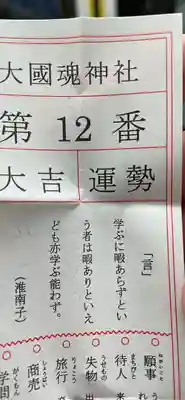 大國魂神社
第12番
運勢
大吉
「言」
学ぶに暇あらずとい
う者は暇ありといえ
ども亦学ぶ能わず。
(淮南子)
願事
ねがいごと
待人 来
まちびと
失物 出
うせもの
旅行
りょこう
商売
しょうばい
学問
がくもん